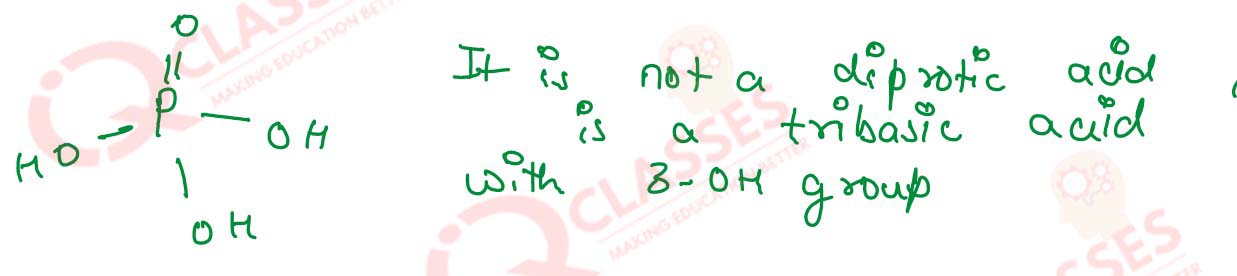 O
||
P
HO
OH
OH
It is not a diprotic acid,
is a tribasic acid
with 3-OH group
CLASSES
MAKING EDUCATION BETTER
CLASSES
MAKING EDUCATION BETTER
ASSES